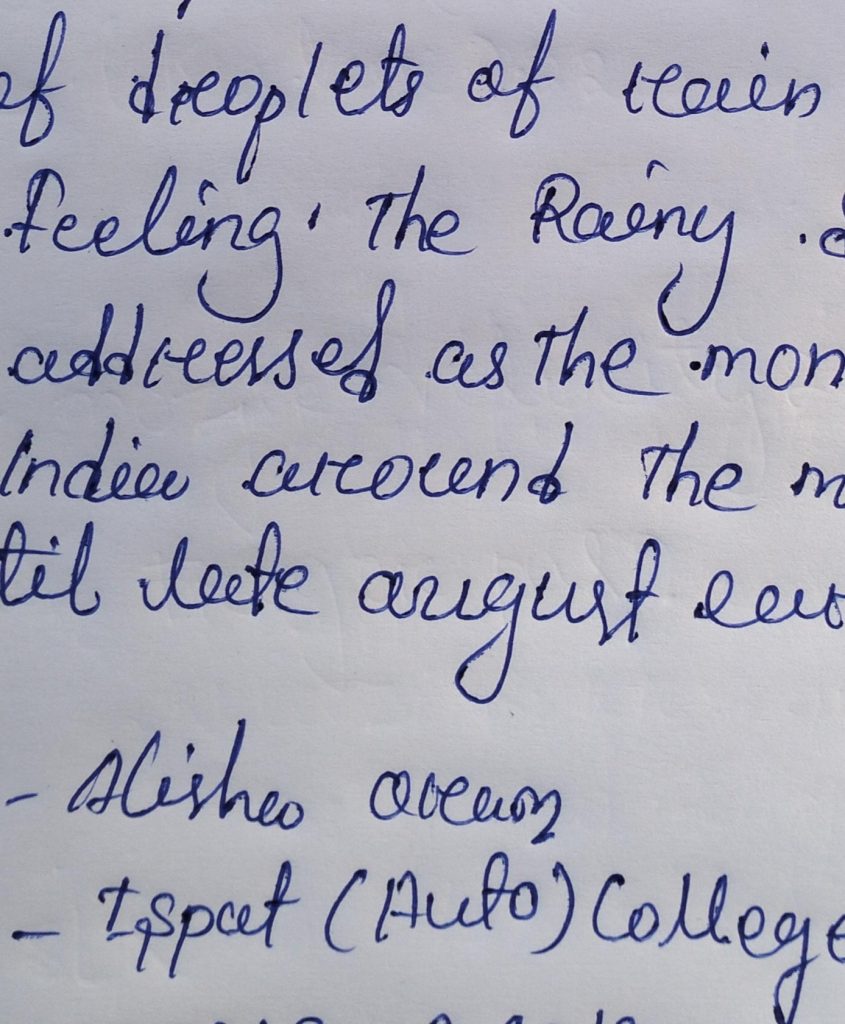 of droplets of rain
feeling. The Rainy
addressed as the mon
India around the m
til late august
- Alisha
- Ispat (Auto) College